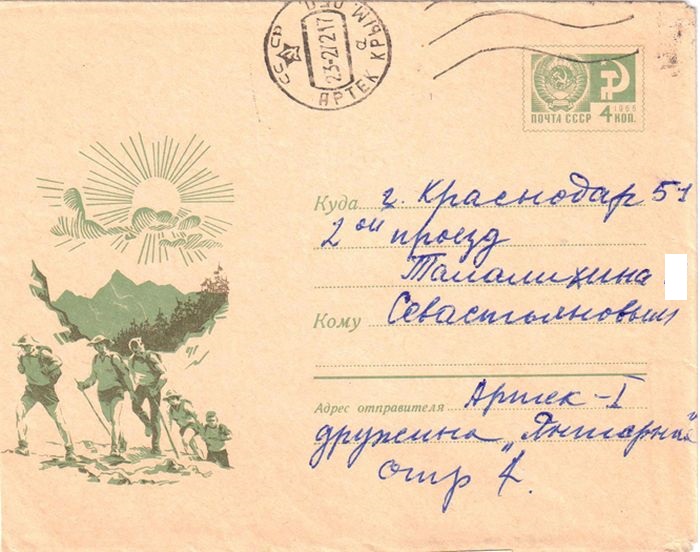 СССР
23-2 72 17
а
АРТЕК КРЫМ. ОБЛ.
1966
ПОЧТА СССР 4 КОП.
Куда г. Краснодар 51
2ой проезд
Тамалихина
Кому Севастьяновым
Адрес отправителя Артек-I
дружина „Янтарная"
отр 1.